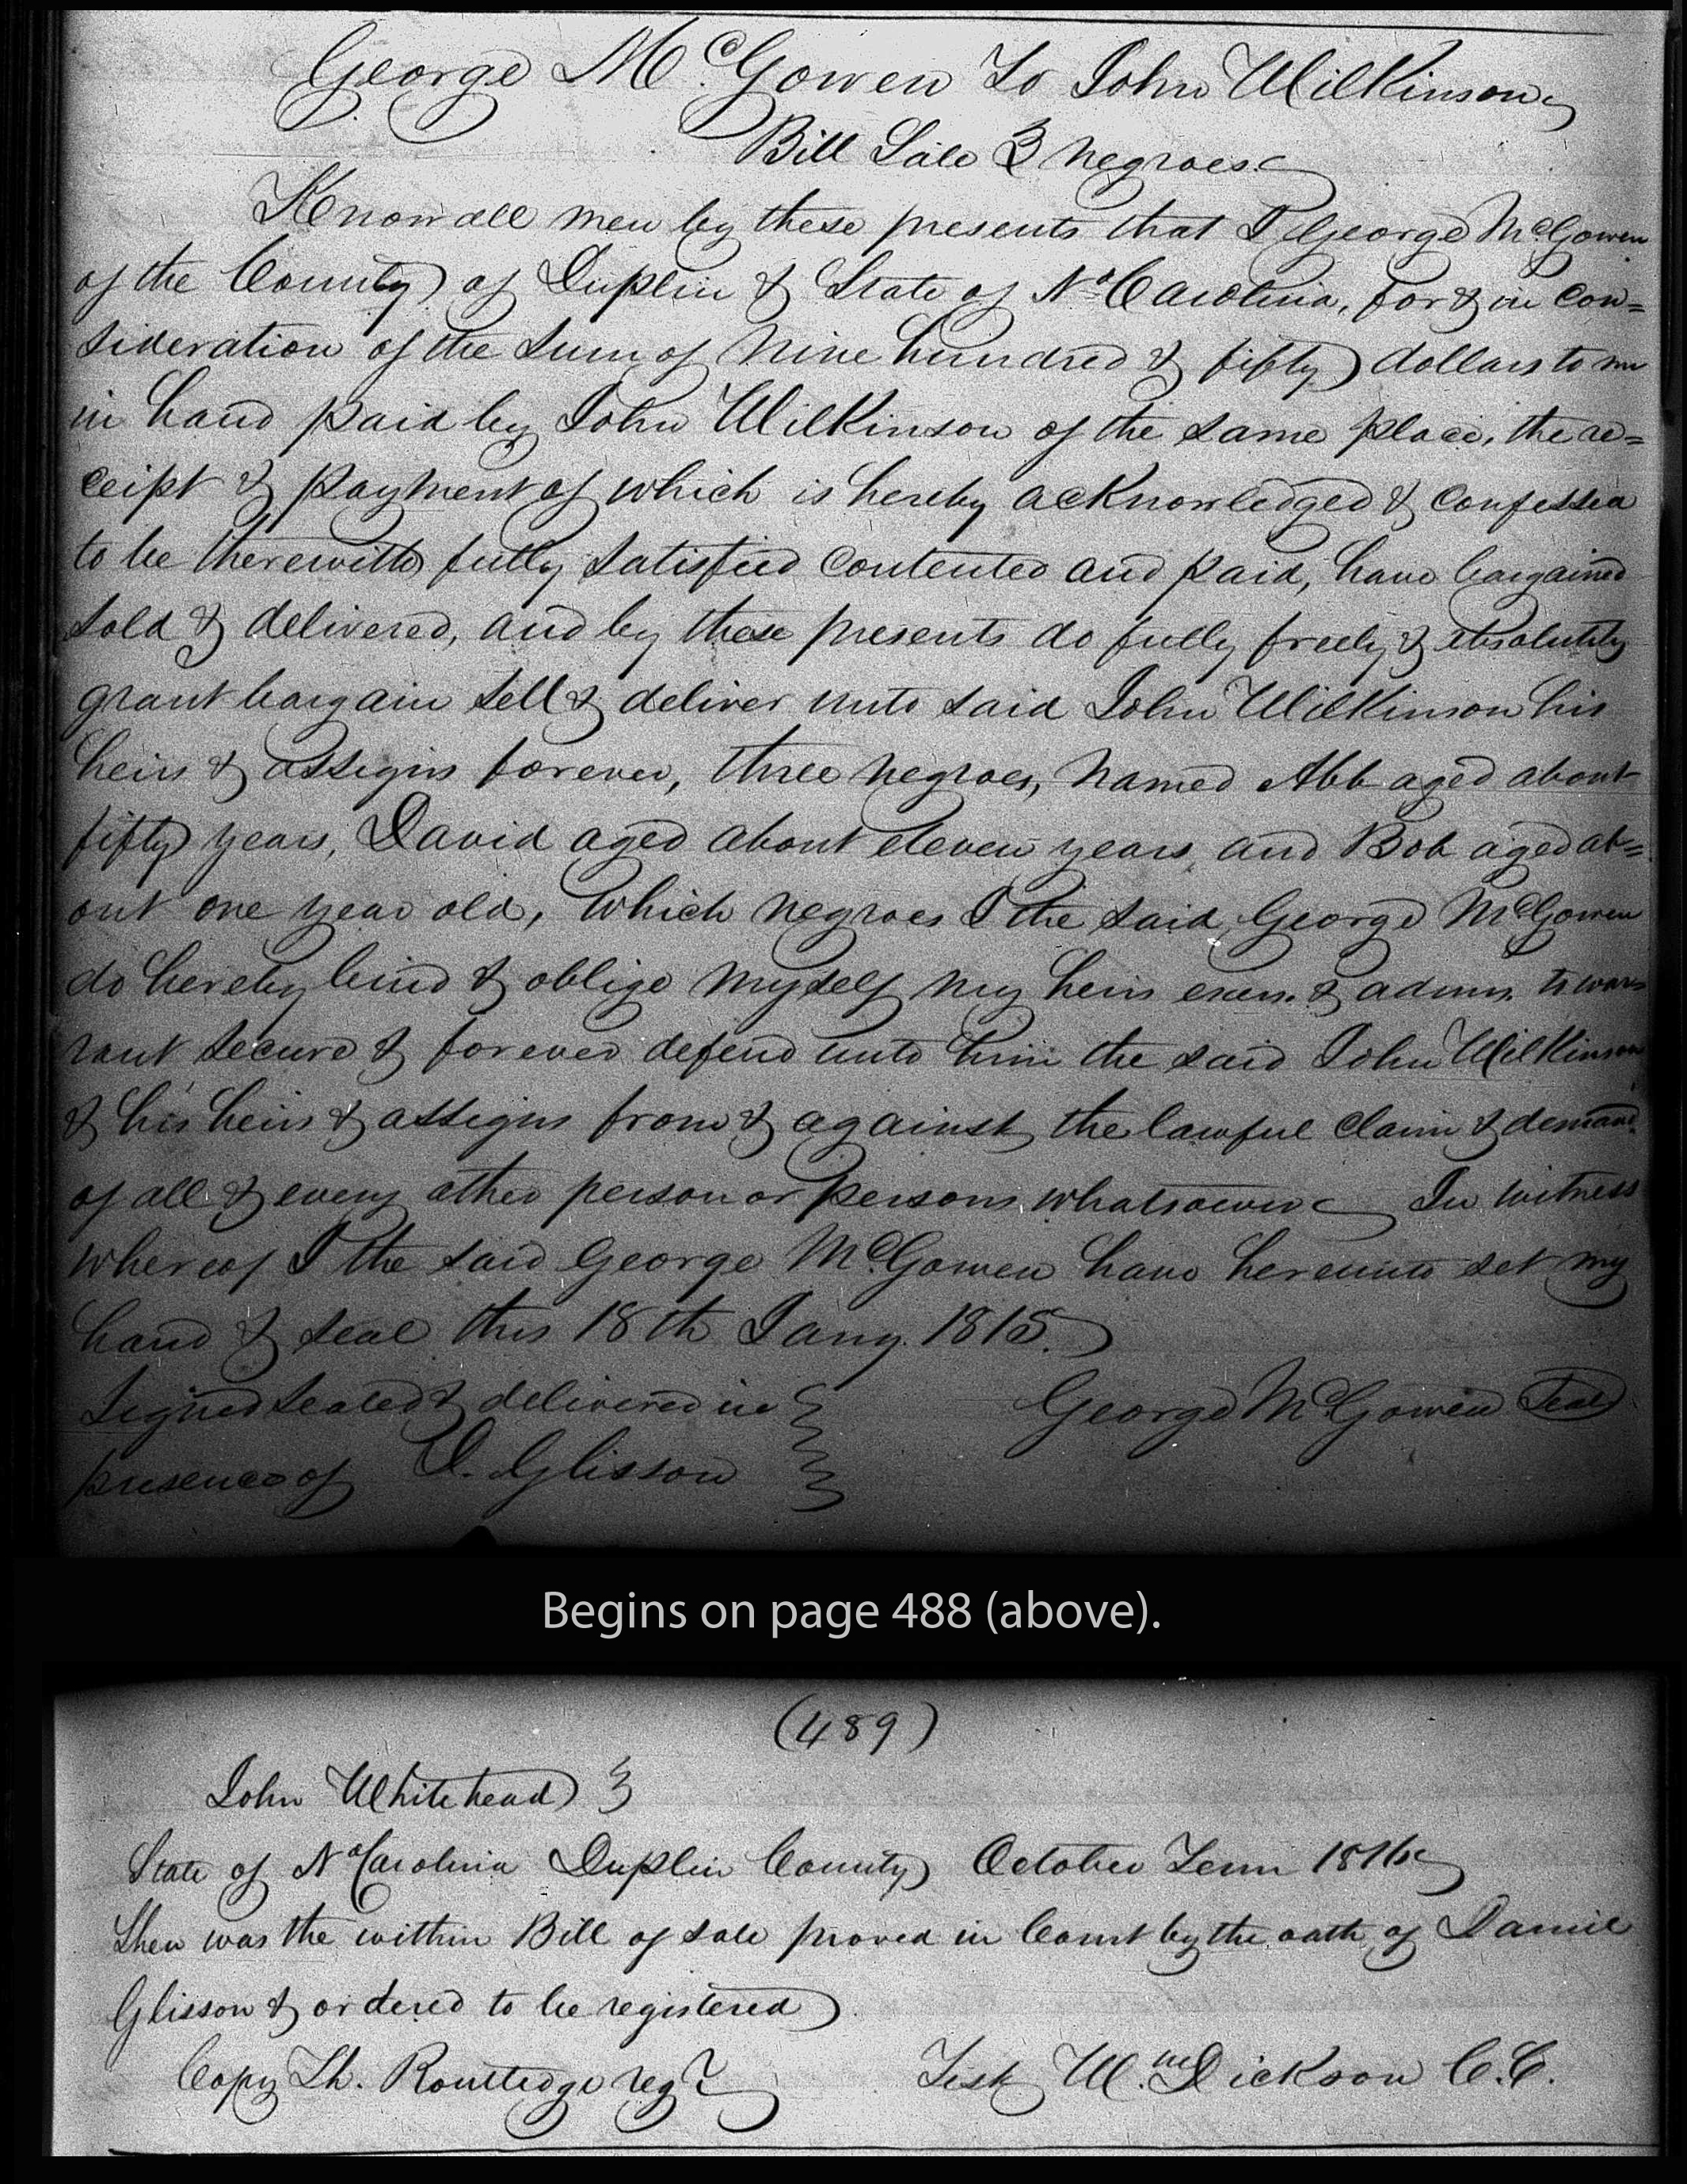 George McGowen To John Wilkinson
Bill Sale 3 negroes
Know all men by these presents that I George McGowen
of the County of Duplin & State of No Carolina, for & in con=
sideration of the sum of nine hundred & fifty dollars to me
in hand paid by John Wilkinson of the same place, the re=
ceipt & payment of which is hereby acknowledged & confessed
to be therewith fully satisfied contented and paid, have bargained
sold & delivered, and by these presents do fully freely & absolutely
grant bargain sell & deliver unto said John Wilkinson his
heirs & assigns forever, three negroes, named Abb aged about
fifty years, David aged about eleven years, and Bob aged ab=
out one year old, which negroes I the said George McGowen
do hereby bind & oblige myself my heirs exers. & admrs. to war=
rant secure & forever defend unto him the said John Wilkinson
& his heirs & assigns from & against the lawful claim & demand
of all & every other person or persons whatsoever In witness
whereof I the said George McGowen have hereunto set my
hand & seal this 18th Jany. 1815.
Signed sealed & delivered in George McGowen Seal
presence of D. Glisson
Begins on page 488 (above).
(489)
John Whitehead
State of No Carolina Duplin County October Term 1816
Then was the within Bill of sale proved in Court by the oath of Daniel
Glisson & ordered to be registered
Copy Th. Routledge regr Test Wm. Dickson C.C.